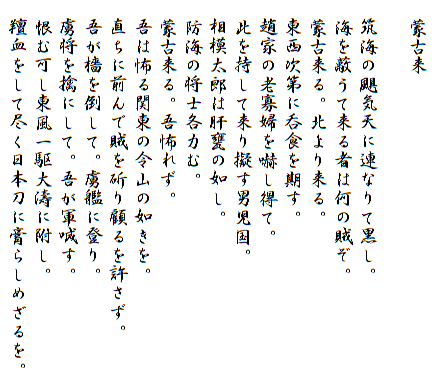 蒙古来
筑海の颶気天に連なりて黒し。
海を蔽うて来る者は何の賊ぞ。
蒙古来る。北より来る。
東西次第に呑食を期す。
趙家の老寡婦を嚇し得て。
此を持して来り擬す男児国。
相模太郎は肝甕の如し。
防海の将士各力む。
蒙古来る。吾怖れず。
吾は怖る関東の令山の如きを。
直ちに前んで賊を斫り顧るを許さず。
吾が檣を倒して。虜艦に登り。
虜将を擒にして。吾が軍喊す。
恨む可し東風一駆大濤に附し。
羶血をして尽く日本刀に膏らしめざるを。